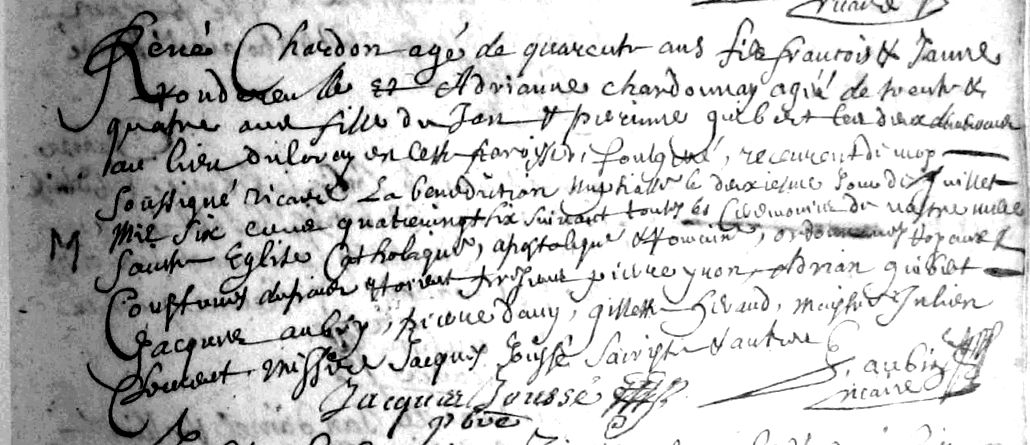 vicaire
René Chardon agé de quarente ans fils francois & Janne
et Adrianne chardonnay agéé de trente &
quatre ans fille de Jan & perinne guibert les deux demeurant
au lieu du en ceste paroisse, receurent de moy
soussigné vicaire La benediction nuptialle le deuxiesme Jour de Juillet
M
mil six cens quatrevingt six suivant toutes les Ceremonies de nostre mere
saincte Eglise Catholique, apostolique & romaine, ordonnances royaux &
Coustumes du païs estoient presens pierre yvon, Adrian guibert
Jacques aubry, pierre davy, gillette, maistre Julien
missire Jacques Joussé sacriste & autres
J. aubin
vicaire
Jacques Jousse
pbre